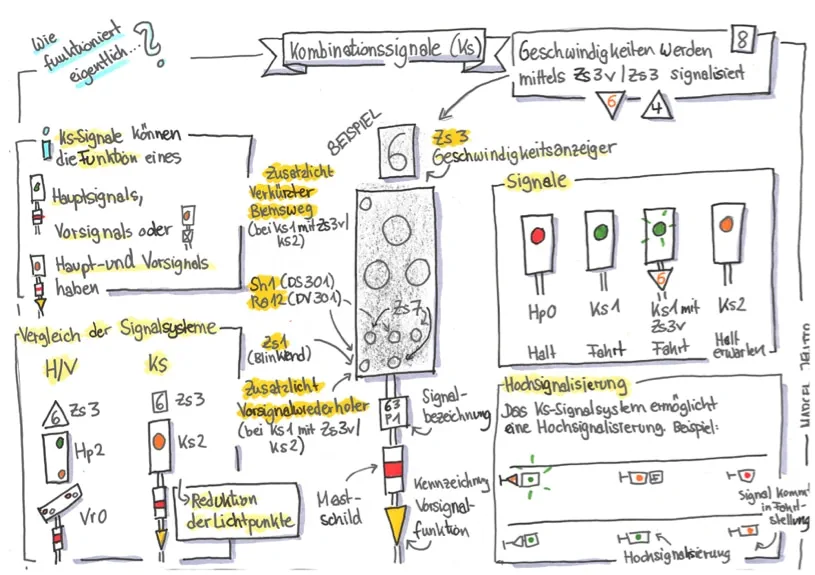 Wie
funktioniert
eigentlich...?
Kombinationssignale (Ks)
Geschwindigkeiten werden
mittels Zs3v/Zs3 signalisiert
8
6
4
Ks-Signale können
die Funktion eines
Hauptsignals,
Vorsignals oder
Haupt- und Vorsignals
haben
BEISPIEL
6
Zs 3
Geschwindigkeitsanzeiger
Zusätzlicht
Verkürzter
Bremsweg
(bei Ks1 mit Zs3v/
Ks2)
Sh1 (DS301)
Ra12 (DV301)
Zs7
Zs1
(Blinkend)
Zusatzlicht
Vorsignalwiederholer
(bei Ks1 mit Zs3v/
Ks2)
63
P1
Signal-
bezeichnung
Mast-
schild
Kennzeichnung
Vorsignal-
funktion
Signale
6
Hp0
Ks1
Ks1 mit
Zs3v
Ks2
Halt
Fahrt
Fahrt
Halt
erwarten
Vergleich der Signalsysteme
H/V
Ks
6
Zs3
6
Zs3
Hp2
Ks2
Vr0
Reduktion
der Lichtpunkte
Hochsignalisierung
Das Ks-Signalsystem ermöglicht
eine Hochsignalisierung. Beispiel:
Signal kommt
in Fahrt-
stellung
Hochsignalisierung
MARCEL JELITTO